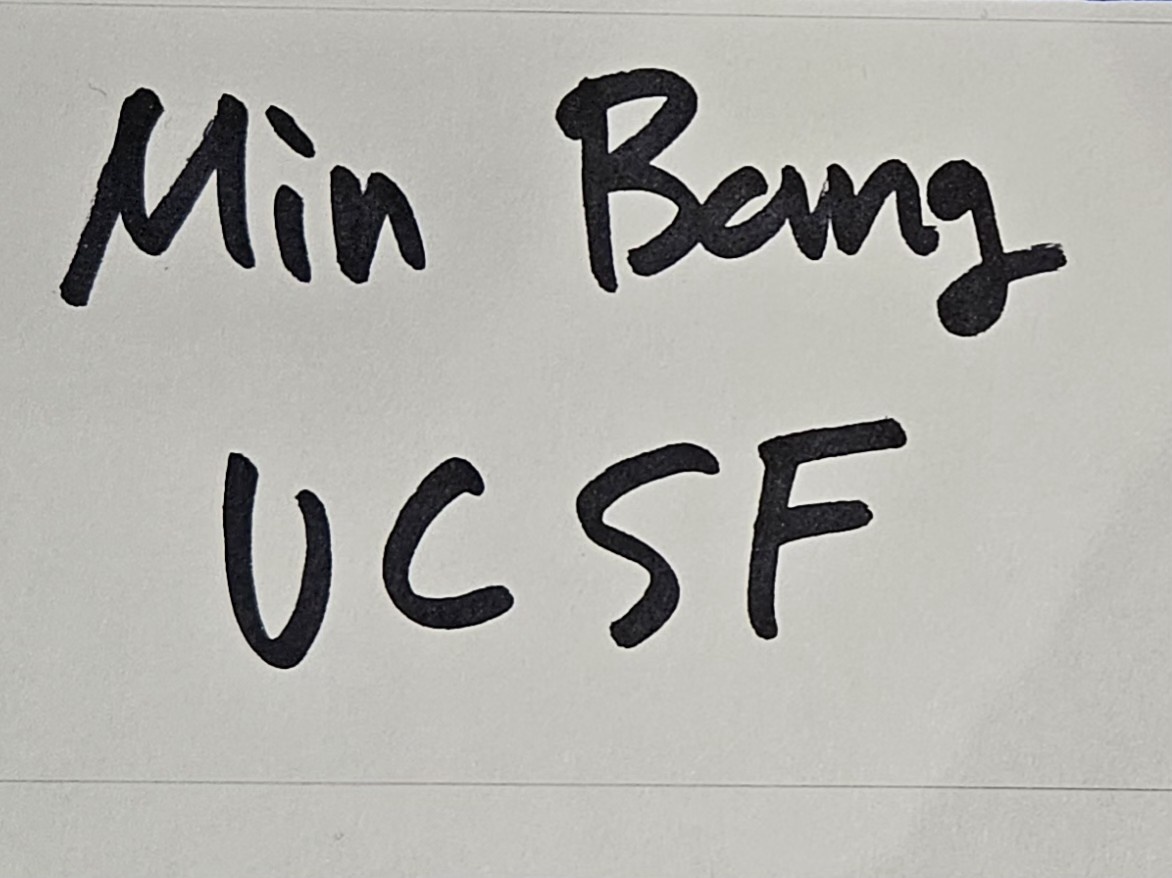 Min Bang
UCSF